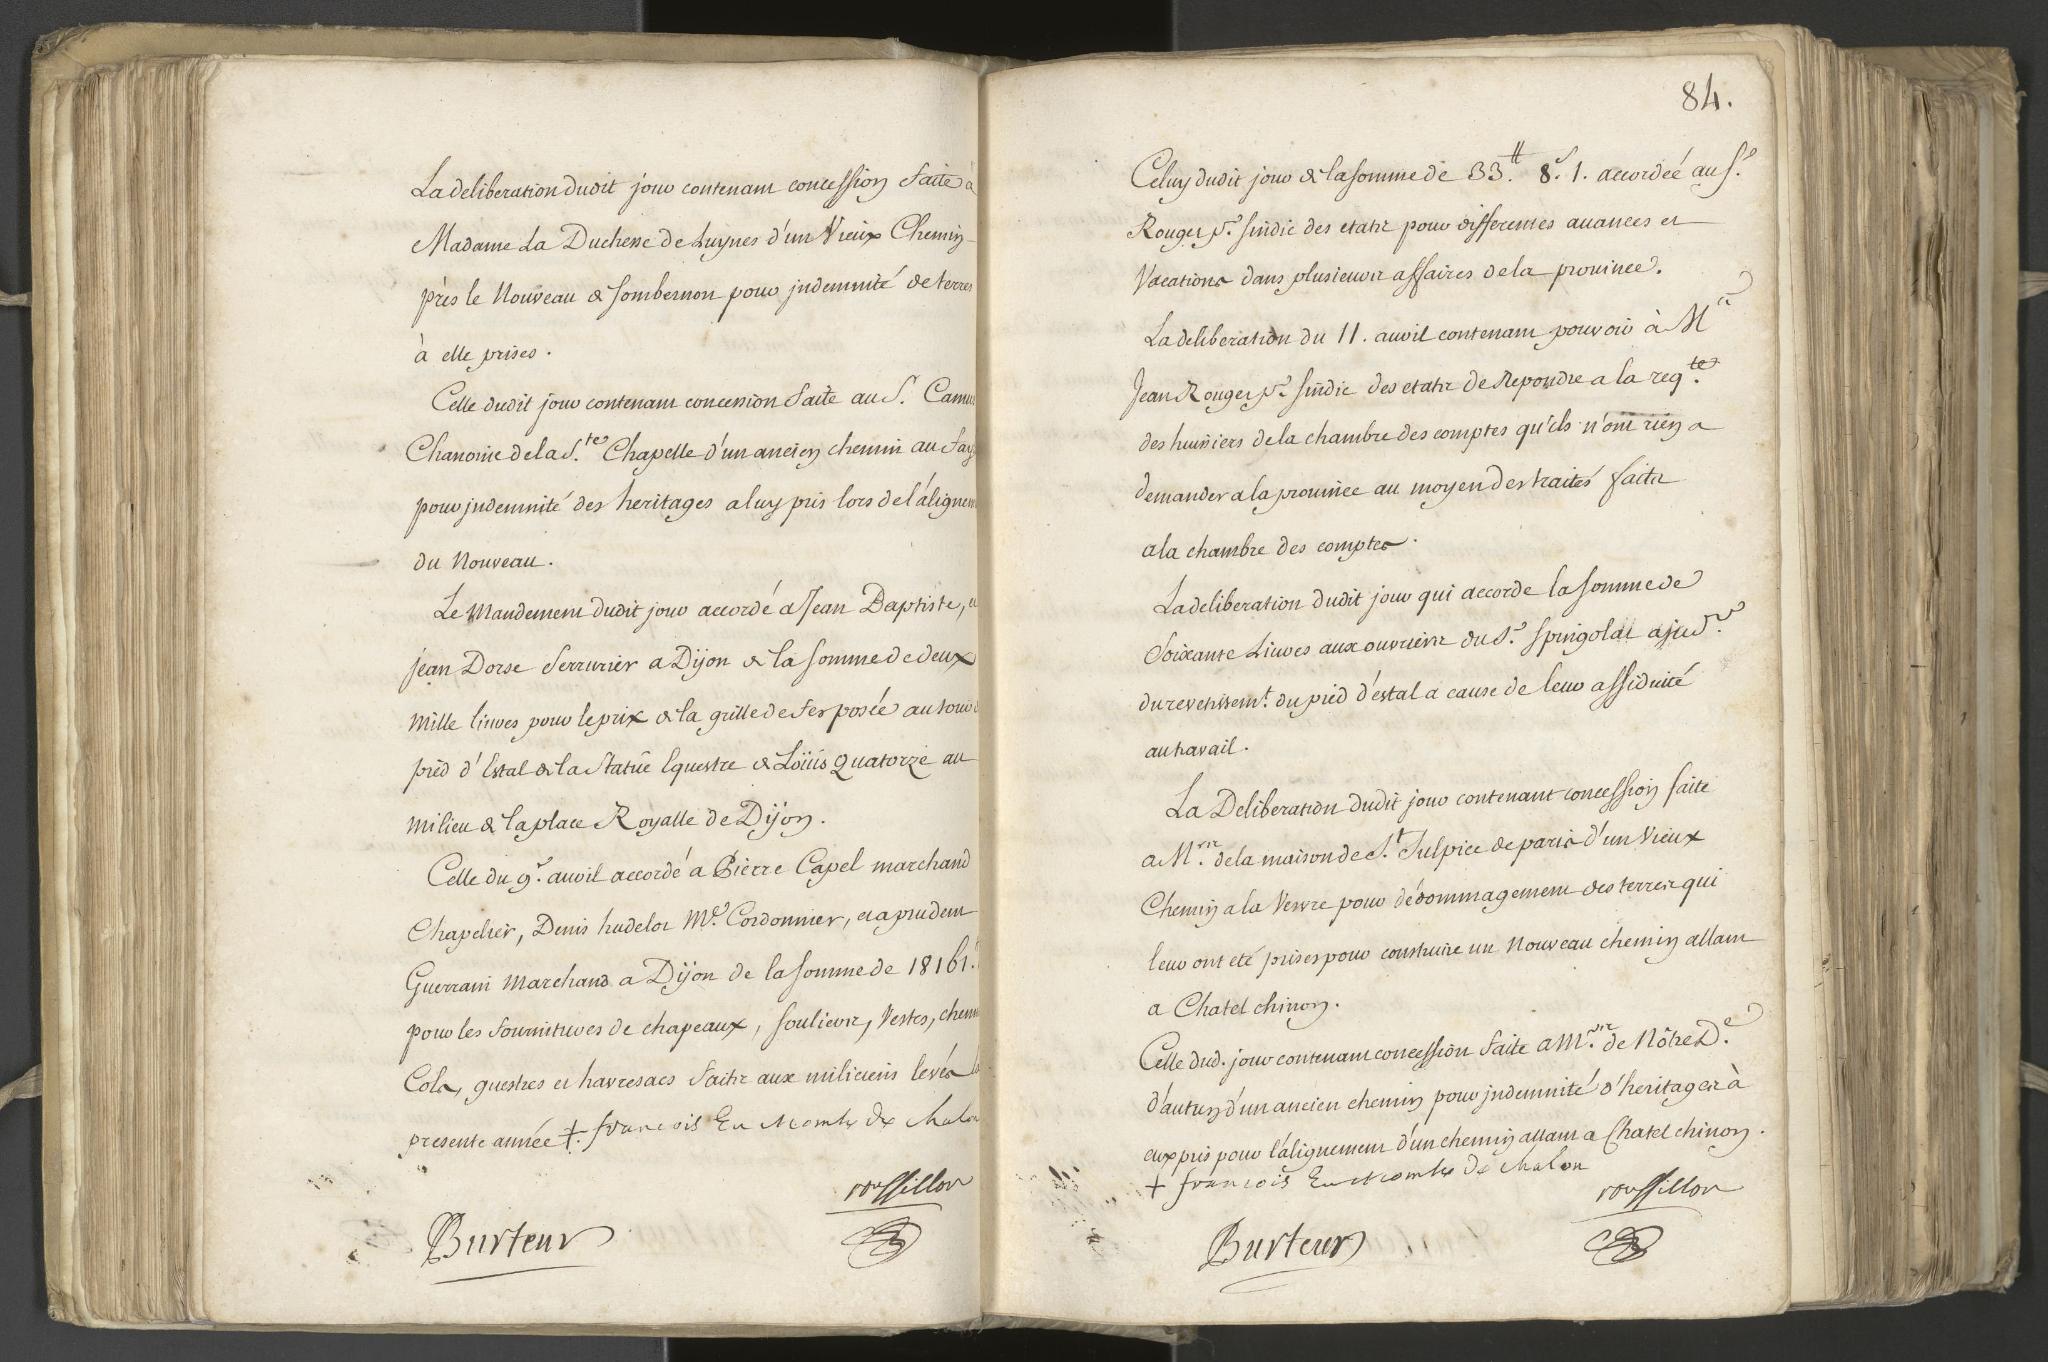 La deliberation dudit jour contenant concession faite à
Madame La Duchesse de Luynes d'un Vieux Chemin
près le Nouveau de Sombernon pour jndemnité de terres
à elle prises.
Celle dudit jour contenant concession faite au S.r Camus
Chanoine de la S.te Chapelle d'un ancien chemin au Fay
pour jndemnité des heritages a luy pris lors de l'álignem
du Nouveau.
Le Mandement dudit jour accordé a Jean Baptiste, et
jean Dorse Serrurier a Dijon de la somme de deux
mille livres pour le prix de la grille de fer posée autour
pied d'Estal de la Statüe Equestre de Loüis Quatorze au
milieu de la place Royalle de Dijon.
Celle du 9.e avril accordé a Pierre Capel marchand
Chapelier, Denis hudelot M.e Cordonnier, et aprudent
Guerrain Marchand a Dijon de la somme de 18161.
pour les fournitures de chapeaux, souliers, Vestes, chem
Cols, guestres et havresacs faits aux miliciens levés la
presente année ‡. françois
roussillon
Burteur
84.
Celuy dudit jour de la somme de 33.tt 8.s 1. accordeé au S.r
Rouger p.r sindic des etats pour differentes avances et
Vacations dans plusieurs affaires de la province.
La deliberation du 11. avril contenant pouvoir à M.e
Jean Rouger p.r sindic des etats de Repondre a la req.te
des huissiers de la chambre des comptes qu'ils n'ont rien a
demander a la province au moyen des traités faits
a la chambre des comptes.
La deliberation dudit jour qui accorde la somme de
Soixante Livres aux ouvriers du S.r Spingolat ajud.re
du revetissem.t du pied d'estal a cause de leur assiduité
au travail.
La Deliberation dudit jour contenant concession faite
a M.rs de la maison de S.t Sulpice de paris d'un Vieux
Chemin a la Vesvre pour dédommagement des terres qui
leur ont eté prises pour construire un Nouveau chemin allant
a Chatel chinon.
Celle dud. jour contenant concession faite a M.rs de Nôtre D.e
d'autun d'un ancien chemin pour jndemnité d'heritages à
eux pris pour l'álignement d'un chemin allant a Chatel chinon.
‡ françois
roussillon
Burteur